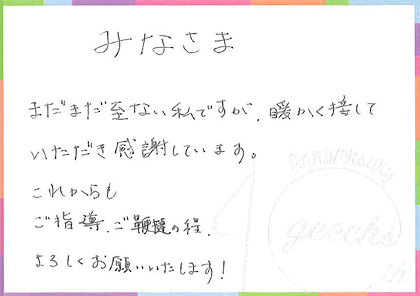 みなさま
まだまだ至ない私ですが、暖かく接して
いただき感謝しています。
これからも
ご指導、ご鞭撻の程、
よろしくお願いいたします!
Anniversary
10
geechs